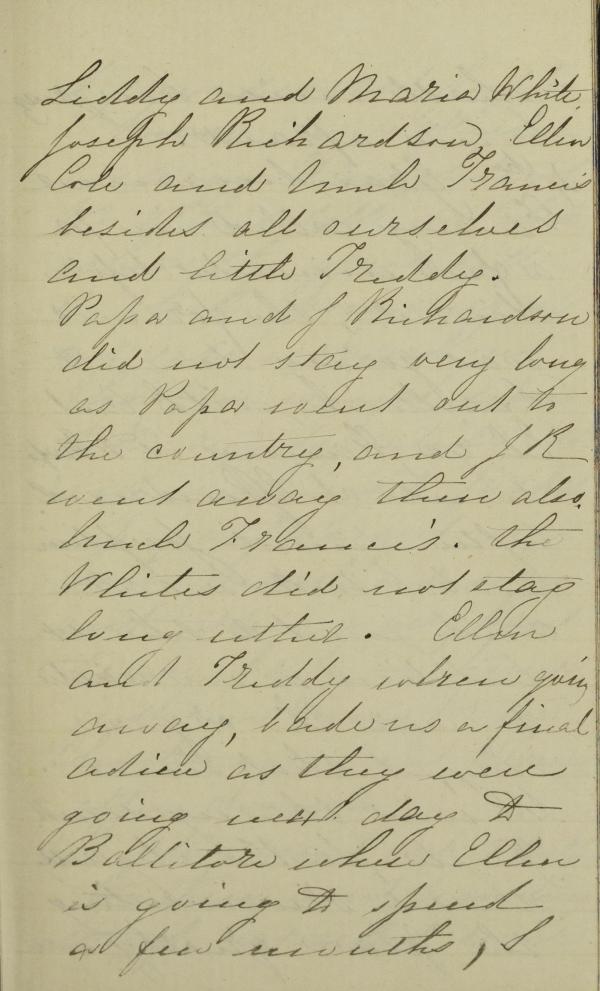 Liddy and Maria White,
Joseph Richardson, Ellen
Cole and Uncle Francis
besides all ourselves
and little Freddy.
Papa and J Richardson
did not stay very long
as Papa went out to
the country, and J R
went away then also.
Uncle Francis. The
Whites did not stay
long either. Ellen
and Freddy when going
away, bade us a final
adieu as they were
going next day to
Ballitore where Ellen
is going to spend
a few months, S